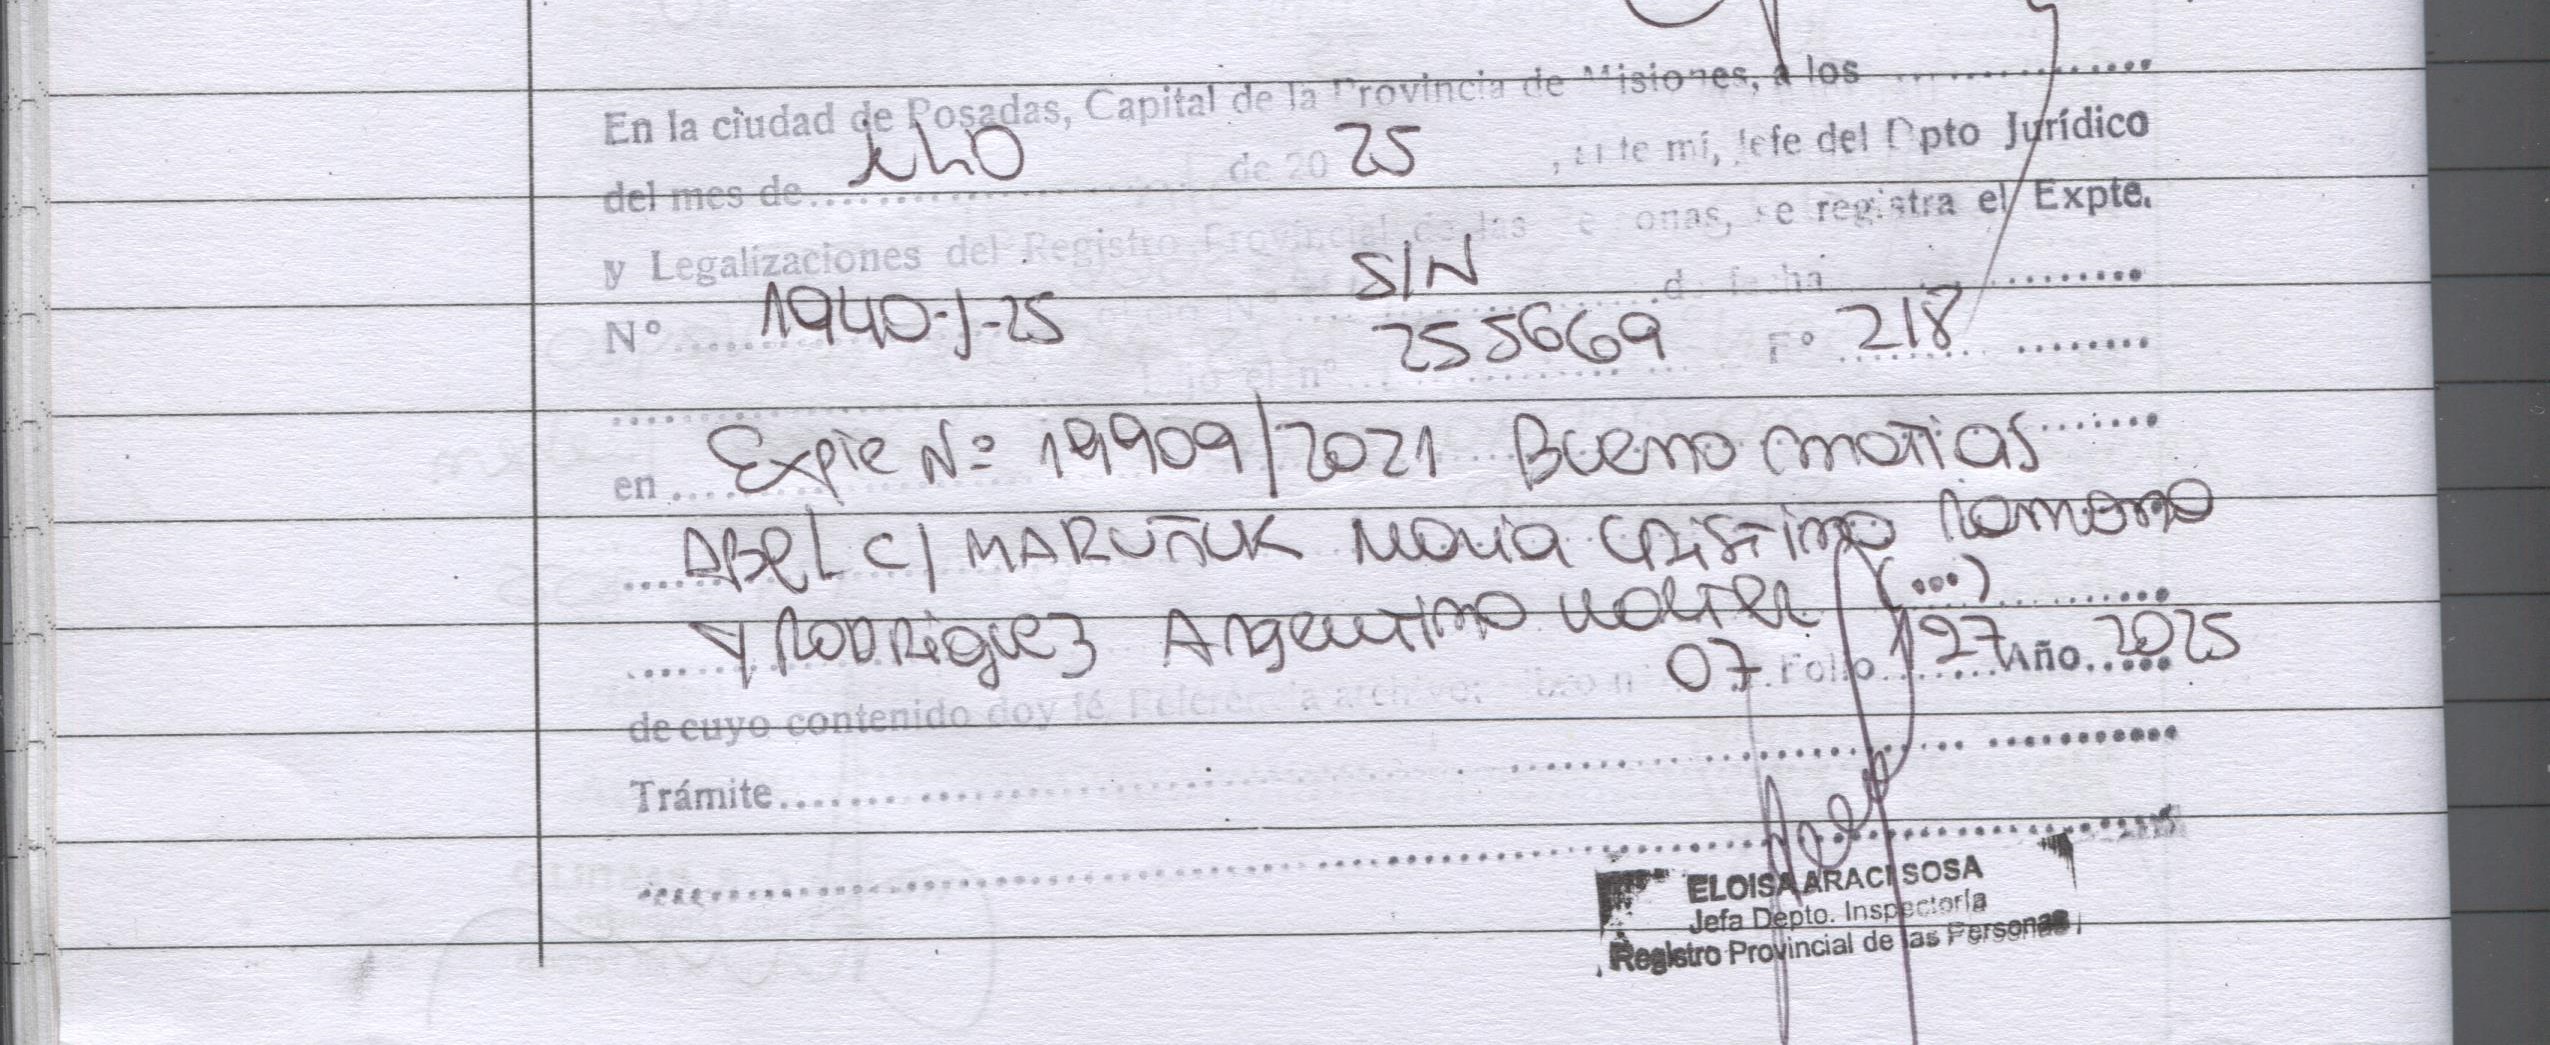 En la ciudad de Posadas, Capital de la Provincia de Misiones, a los ..........
del mes de julio de 20 25, ante mí, Jefe del Dpto Jurídico
y Legalizaciones del Registro Provincial de las Personas, se registra el Expte.
N° 1940-J-25 S/N de fecha
255669 F° 218
en Expte Nº 19909/2021 Bueno Matias
Abel C/ MARUÑUK Maria Cristina Romero
Y RODRIGUEZ Argentino Walter (...)
de cuyo contenido doy fé. Referencia archivo: libro n° 07 Folio 127 Año 2025
Trámite
ELOISA ARACI SOSA
Jefa Depto. Inspectoría
Registro Provincial de las Personas